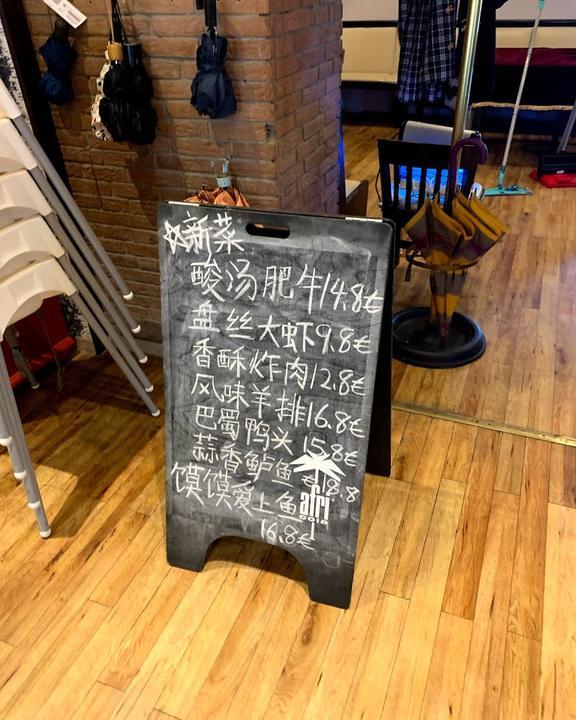 ☆新菜
酸汤肥牛14.8€
盘丝大虾9.8€
香酥炸肉12.8€
风味羊排16.8€
巴蜀鸭头15.8€
蒜香鲈鱼€18.8
馍馍爱上鱼
16.8€
afri
cola